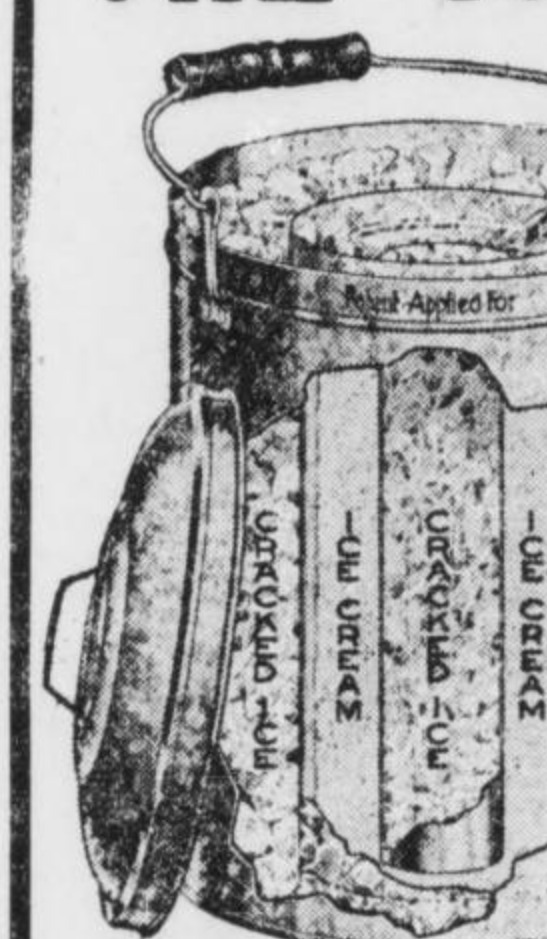 Patent Applied For
CRACKED ICE
ICE CREAM
CRACKED ICE
ICE CREAM